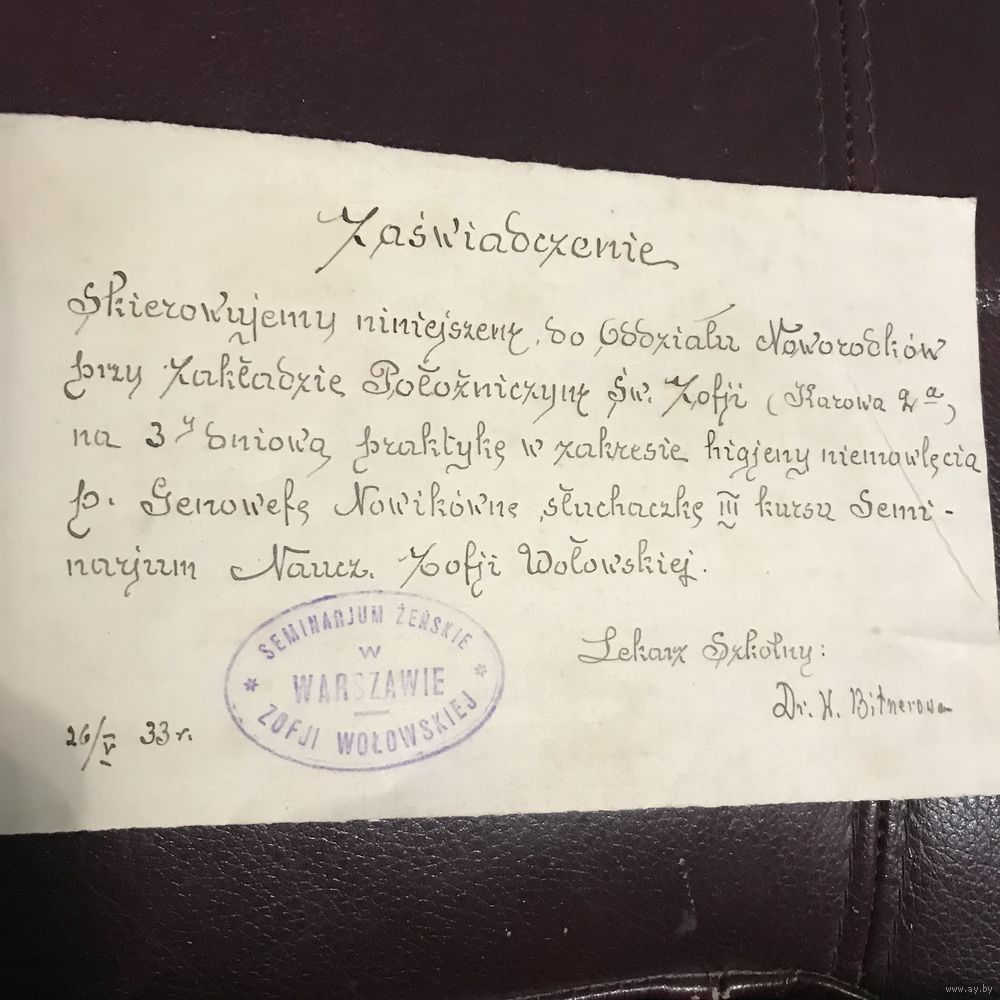 Zaświadczenie
Skierowujemy niniejszem, do Oddziału Noworodków
przy Zakładzie Położniczym Św. Zofji (Karowa 2 a,)
na 3 y dniową praktykę w zakresie higjeny niemowlęcia
p. Genowefę Nowikównę, słuchaczkę III kursu Semi-
narjum Naucz. Zofji Wołowskiej.
SEMINARJUM ŻEŃSKIE
W
WARSZAWIE
ZOFJI WOŁOWSKIEJ
Lekarz Szkolny:
Dr. H. Bitnerowa
26/V 33 r.
www.ay.by